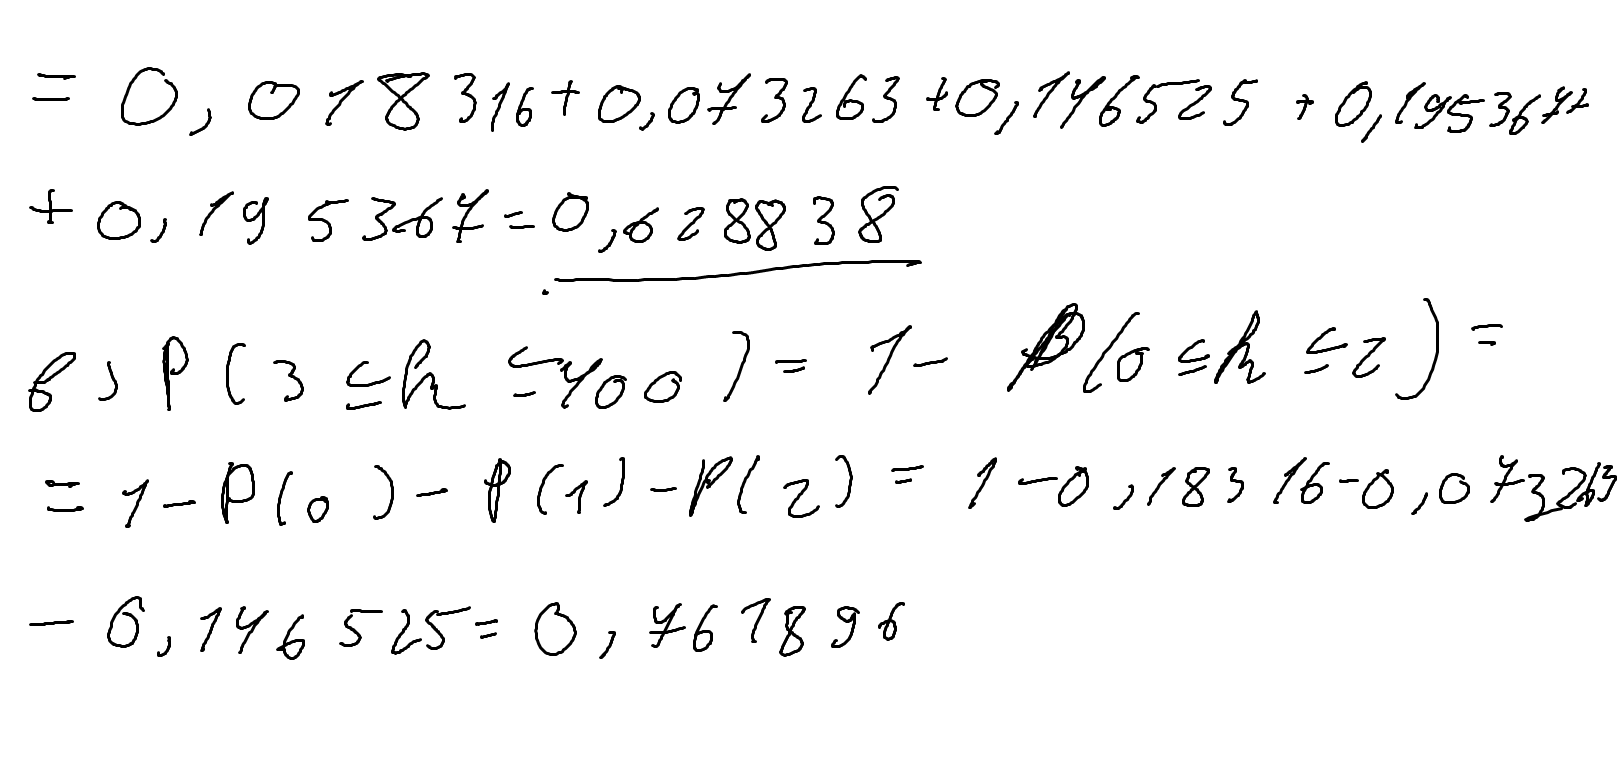 = 0,018316+0,073263+0,146525 + 0,195367+
+ 0,195367=0,628838
в) P(3 ≤ k ≤ 400) = 1 - P(0 ≤ k ≤ 2) =
= 1 - P(0) - P(1) - P(2) = 1 - 0,18316 - 0,073263
- 0,146525 = 0,761896